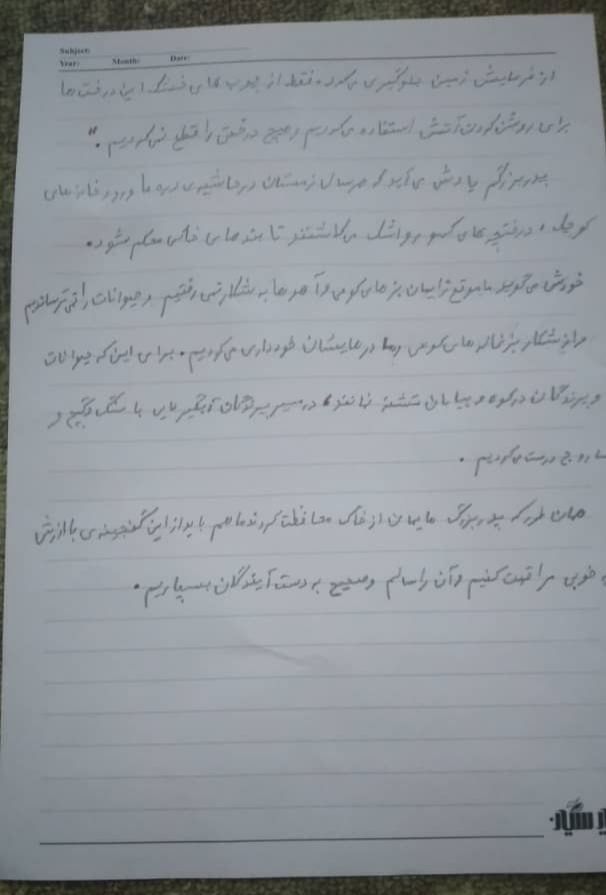 Subject:
Year: Month: Date:
از فرسایش زمین جلوگیری می‌کرد، فقط از چوب های خشک این درخت ها
برای روشن کردن آتش استفاده می‌کردیم و هیچ درختی را قطع نمی‌کردیم."
پدربزرگم یادش می‌آید که هر سال زمستان در حاشیه‌ی دره ها و رودخانه‌های
کوچک، درختچه های می‌کاشتند تا بندهای خاکی محکم شود.
خودش می‌گوید ما موقع زاییمان بزهای کوهی و آهوها به شکار نمی‌رفتیم و حیوانات را نمی‌ترساندیم
و از شکار بزغاله های کوهی خودداری می‌کردیم. برای این که حیوانات
و پرندگان در کوه و بیابان تشنه نمانند، در مسیر آبگیر هایی با سنگ و گچ و
ساروج درست می‌کردیم.
همان طور که پدربزرگ هایمان از خاک محافظت کردند ما هم باید از این گنجینه‌ی باارزش
به خوبی مراقبت کنیم و آن را سالم و صحیح به دست آیندگان بسپاریم.